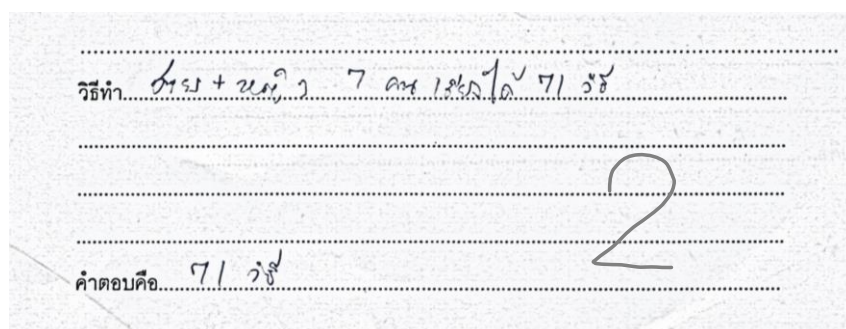 วิธีทำ ชาย + หญิง 7 คน เรียงได้ 7! วิธี
2
คำตอบคือ 7! วิธี